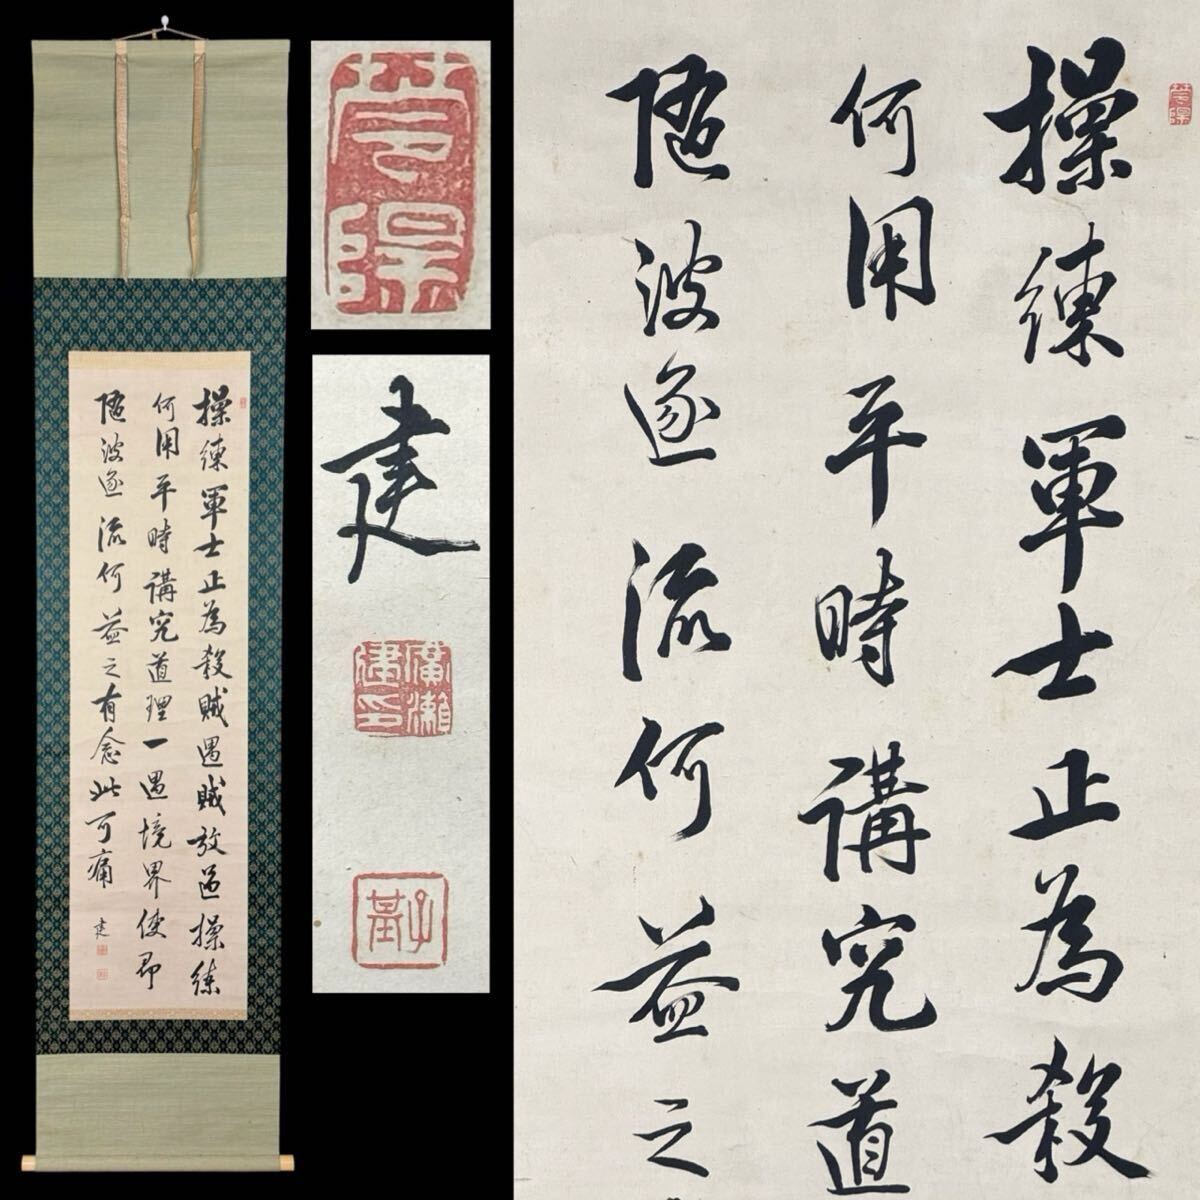 操練軍士正為殺賊遇賊放過操練
何用平時講究道理一遇境界便即
隨波逐流何益之有念此可痛
建
建
廣瀨建印
子基
操練軍士正為殺
何用平時講究道
隨波逐流何益之